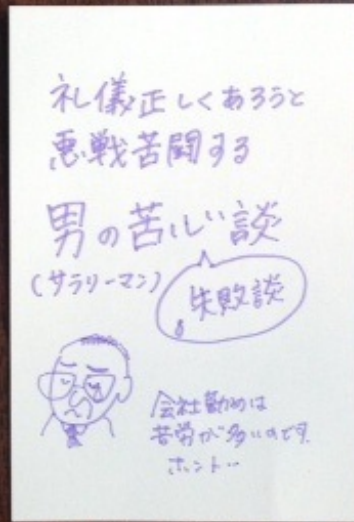 礼儀正しくあろうと
悪戦苦闘する
男の苦い談
(サラリーマン)
失敗談
会社勤めは
苦労が多いのです。
ホント…